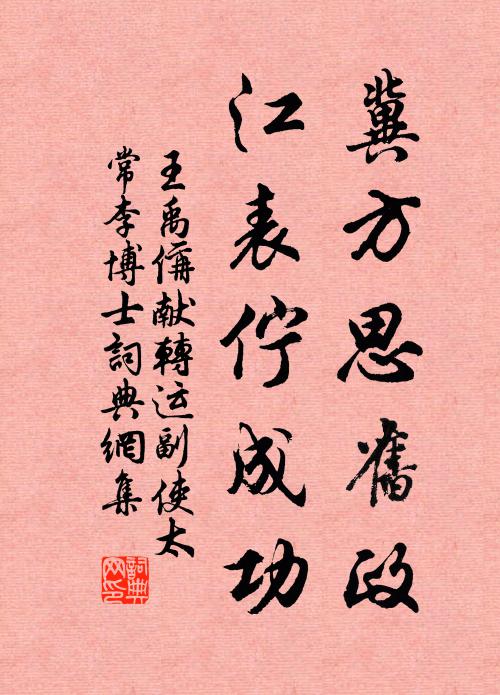 冀方思舊政
江表佇成功
王禹偁献轉运副使太
常李博士詞典網集
詞典网印